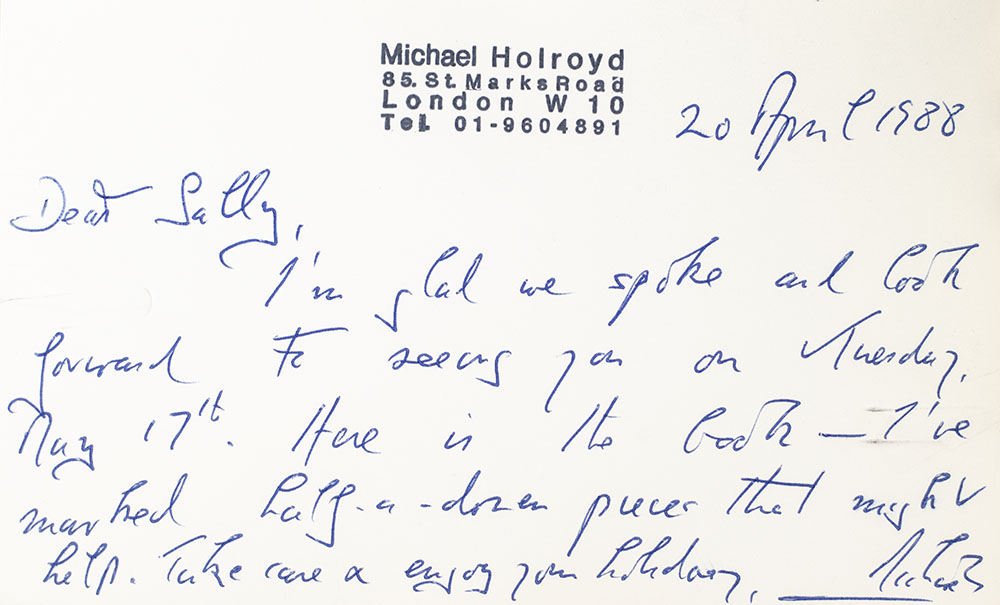 Michael Holroyd
85. St. Marks Road
London W 10
Tel. 01-9604891
20 April 1988
Dear Sally,
I'm glad we spoke and look
forward to seeing you on Tuesday,
May 17th. Here is the book – I've
marked half-a-dozen pieces that might
help. Take care & enjoy your holiday, Michael